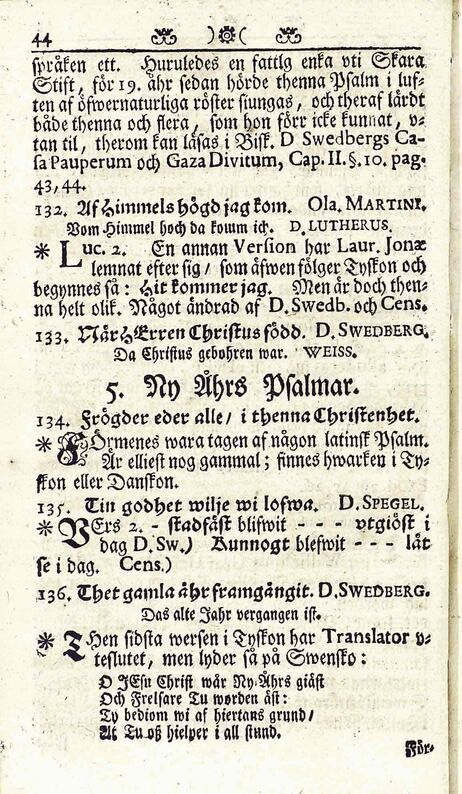 44
språken ett. Huruledes en fattig enka vti Skara
Stift, för 19. åhr sedan hörde thenna Psalm i luf-
ten af öfwernaturliga röster siungas, och theraf lärdt
både thenna och flera, som hon förr icke kunnat, v-
tan til, therom kan läsas i Bisk. D Swedbergs Ca-
sa Pauperum och Gaza Divitum, Cap. II. §. 10. pag.
43, 44.
132. Af Himmels högd jag kom. Ola. MARTINI.
Vom Himmel hoch da komm ich. D. LUTHERUS.
* Luc. 2. En annan Version har Laur. Jonæ
lemnat efter sig / som äfwen fölger Tyskon och
begynnes så: Hit kommer jag. Men är doch then-
na helt olik. Något ändrad af D. Swedb. och Cens.
133. När HErren Christus född. D. SWEDBERG.
Da Christus gebohren war. WEISS.
5. Ny Åhrs Psalmar.
134. Frögder eder alle / i thenna Christenhet.
* FÖrmenes wara tagen af någon latinsk Psalm.
Är elliest nog gammal; finnes hwarken i Ty-
skon eller Danskon.
135. Tin godhet wilje wi lofwa. D. SPEGEL.
* VErs 2. - stadfäst blifwit - - - vtgiöst i
dag D. Sw.) Kunnogt blefwit - - - låt
se i dag. Cens.)
136. Thet gamla åhr framgångit. D. SWEDBERG.
Das alte Jahr vergangen ist.
* THen sidsta wersen i Tyskon har Translator v-
teslutet, men lyder så på Swensko:
O JEsu Christ wår Ny-Åhrs giäst
Och Frelsare Tu worden äst:
Ty bediom wi af hiertans grund /
At Tu oß hielper i all stund.
För-